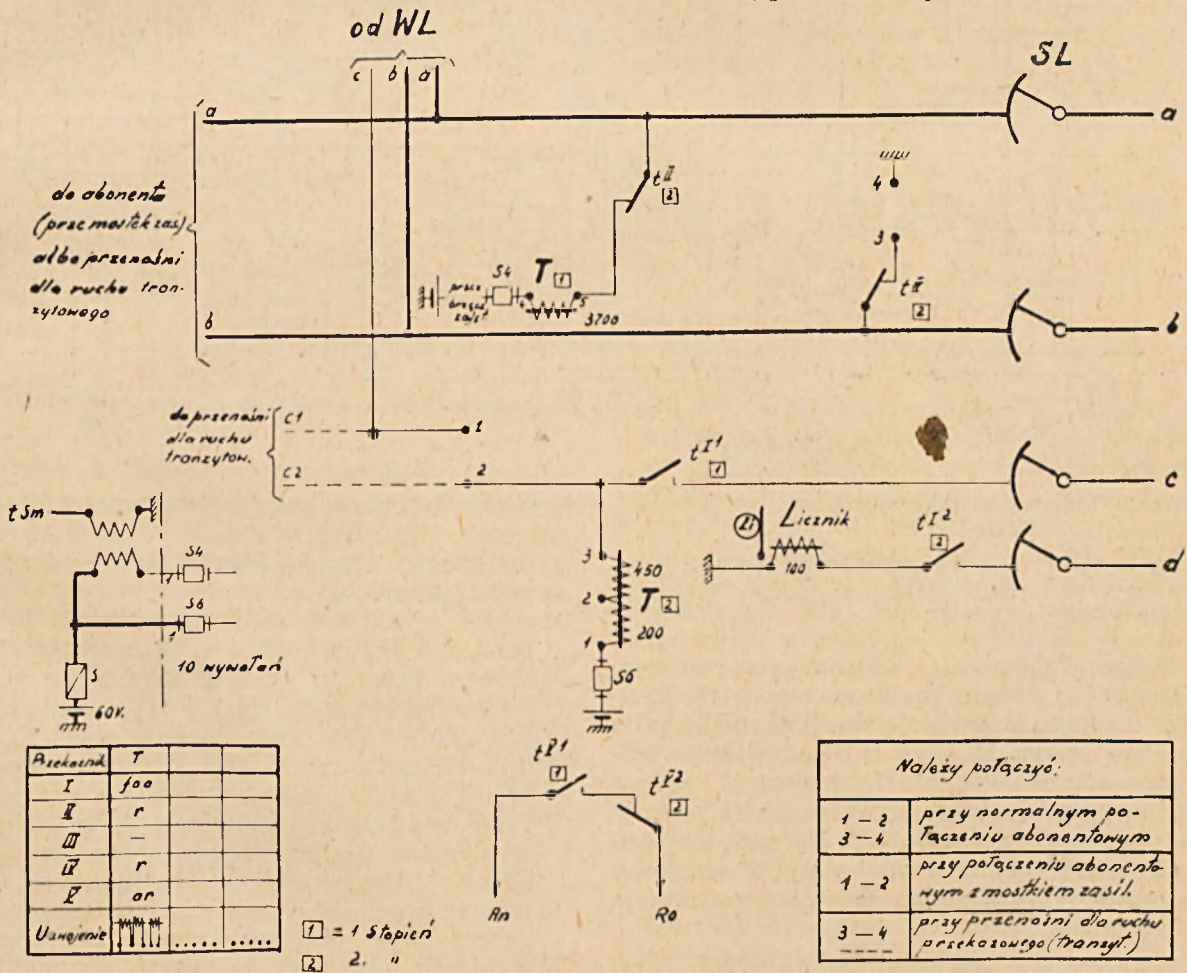 od WL
SL
c b a
a
a
do abonenta
(prze mostek zas)
albo przenośni
dla ruchu tran-
zytowego
t II
2
4
3
t IV
2
S4
T 1
przez
4
5
3700
b
b
do przenośni
dla ruchu
tranzytow.
C1
1
C2
2
t I1
1
c
t Sm
S4
S6
1
10 wywołań
S
60V.
Li
Licznik
100
t I2
2
d
3
450
2
T 2
200
1
S6
t V1
1
t V2
2
An
Ro
Przekaźnik T
I foo
II r
III —
IV r
V ar
Uzwojenie ..... .....
1 = 1 Stopień
2 2. "
Należy połączyć:
1 – 2 przy normalnym po-
3 – 4 łączeniu abonentowym
1 – 2 przy połączeniu abonento-
wym z mostkiem zasil.
3 – 4 przy przenośni dla ruchu
---- przekazowego (tranzyt.)